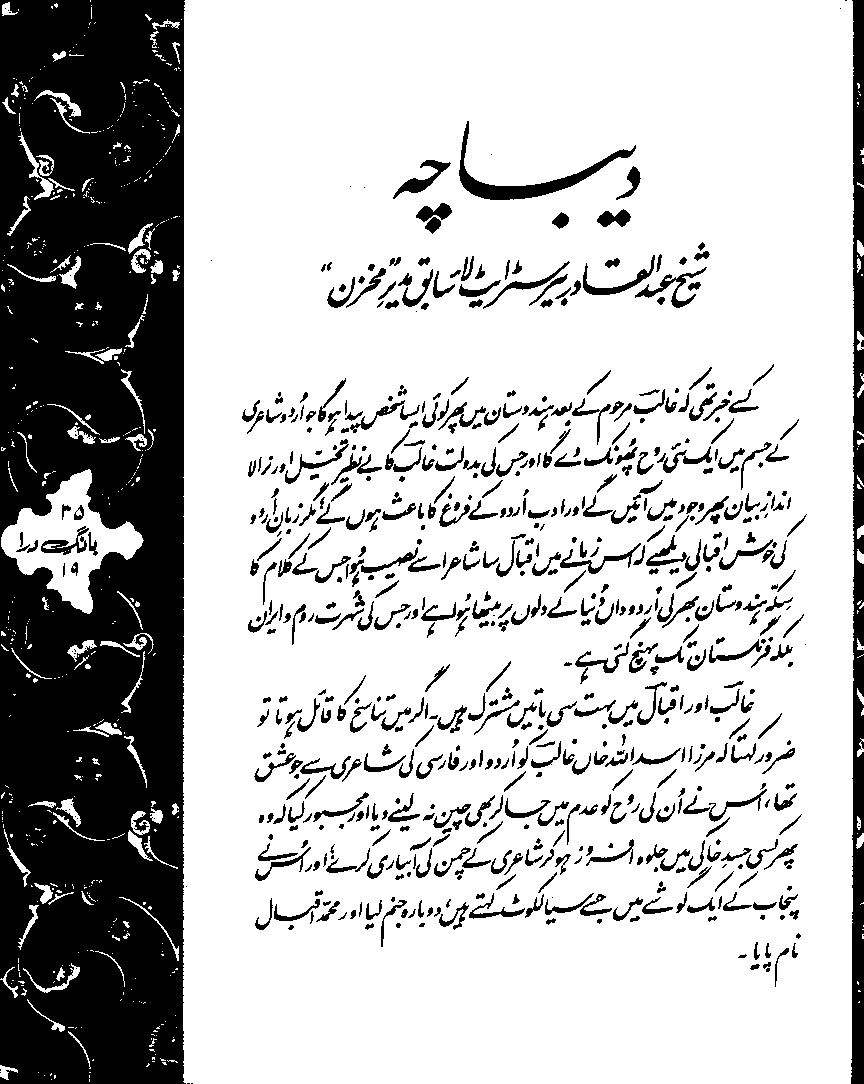 دیباچہ
شیخ عبدالقادر بیرسٹر ایٹ لا سابق مدیر ”مخزن“
کسے خبر تھی کہ غالبؔ مرحوم کے بعد ہندوستان میں پھر کوئی ایسا شخص پیدا ہو گا جو اُردو شاعری
کے جسم میں ایک نئی روح پھُونک دے گا اور جس کی بدولت غالبؔ کا بے نظیر تخیّل اور نرالا
اندازِ بیان پھر وجود میں آئیں گے اور ادبِ اُردو کے فروغ کا باعث ہوں گے؛ مگر زبانِ اُردو
کی خوش اقبالی دیکھیے کہ اس زمانے میں اقبالؔ سا شاعر اسے نصیب ہُوا جس کے کلام کا
سِکّہ ہندوستان بھر کی اُردو داں دُنیا کے دلوں پر بیٹھا ہُوا ہے اور جس کی شُہرت روم و ایران
بلکہ فرنگستان تک پہنچ گئی ہے۔
غالبؔ اور اقبالؔ میں بہت سی باتیں مشترک ہیں۔ اگر میں تناسخ کا قائل ہوتا تو
ضرور کہتا کہ مرزا اسد اللہ خاں غالبؔ کو اُردو اور فارسی کی شاعری سے جو عشق
تھا، اُس نے اُن کی روح کو عدم میں جا کر بھی چین نہ لینے دیا اور مجبور کیا کہ وہ
پھر کسی جسدِ خاکی میں جلوہ افروز ہو کر شاعری کے چمن کی آبیاری کرے؛ اور اُس نے
پنجاب کے ایک گوشے میں جسے سیالکوٹ کہتے ہیں، دوبارہ جنم لیا اور محمد اقبال
نام پایا۔
۳۵
بانگِ درا
۱۹